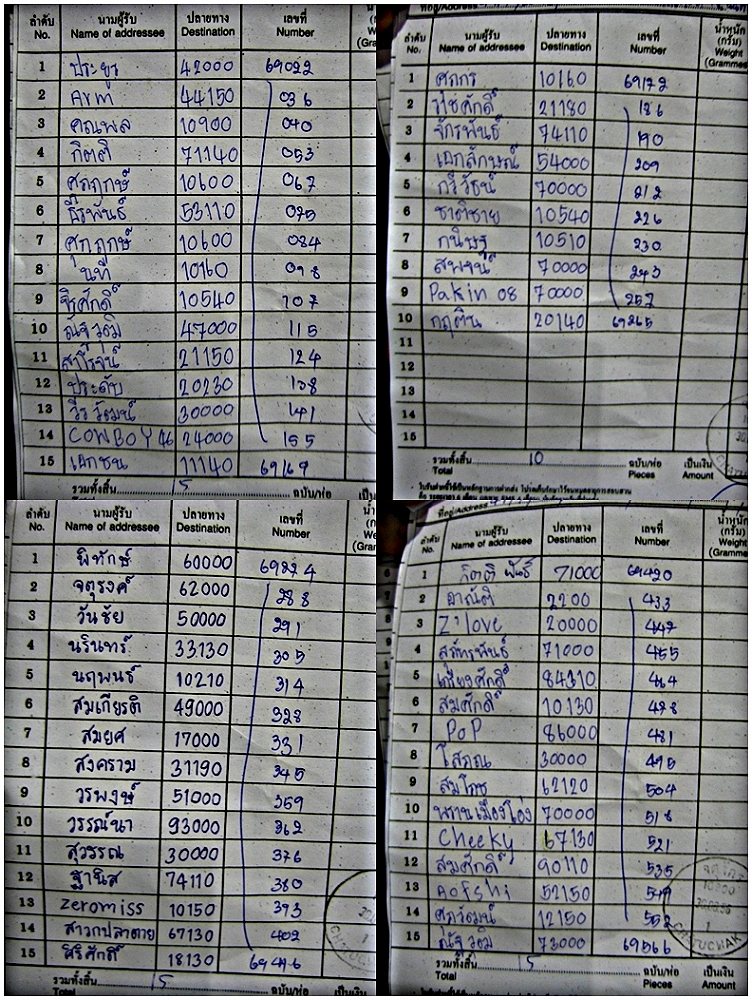 ลำดับ No. นามผู้รับ Name of addressee ปลายทาง Destination เลขที่ Number
1 ประยูร 42000 69022
2 Arm 44150 036
3 คณพล 10900 040
4 กิตติ 71140 053
5 ศุภฤกษ์ 10600 067
6 ธีรพันธ์ 53110 075
7 ศุภฤกษ์ 10600 084
8 นที 10160 098
9 จิรศักดิ์ 10540 107
10 ณัฐวุฒิ 47000 115
11 สาโรจน์ 21150 124
12 ประดับ 20230 138
13 วีรวัฒน์ 30000 141
14 COWBOY 46 24000 155
15 เอกชน 11140 69169
รวมทั้งสิ้น 15 ฉบับ/ห่อ เป็นเงิน
ลำดับ No. นามผู้รับ Name of addressee ปลายทาง Destination เลขที่ Number น้ำหนัก (กรัม) Weight (Gramme
1 ศุภกร 10160 69172
2 วุฒิศักดิ์ 21180 186
3 จักรพันธ์ 74110 190
4 เอกลักษณ์ 54000 209
5 70000 212
6 ชาติชาย 10540 226
7 กนิษฐ 10510 230
8 70000 243
9 Pakin 08 70000 257
10 กฤติน 20140 69265
11
12
13
14
15
รวมทั้งสิ้น Total 10 ฉบับ/ห่อ Pieces เป็นเงิน Amount
ลำดับ No. นามผู้รับ Name of addressee ปลายทาง Destination เลขที่ Number
1 พิทักษ์ 60000 69274
2 จตุรงค์ 62000 288
3 วันชัย 50000 291
4 นรินทร์ 33130 305
5 นฤพนธ์ 10210 314
6 สมเกียรติ 49000 328
7 สมยศ 17000 331
8 สงคราม 31190 345
9 วรพงษ์ 51000 359
10 วรรณ์นา 93000 362
11 สุวรรณ 30000 376
12 ฐานิส 74110 380
13 zeromiss 10150 393
14 สาวกปลาตาย 67130 402
15 ศิริศักดิ์ 18130 69416
รวมทั้งสิ้น 15 ฉบับ/ห่อ เป็นเงิน
ลำดับ No. นามผู้รับ Name of addressee ปลายทาง Destination เลขที่ Number น้ำหนัก (กรัม) Weight (Gramme
1 กิตติพันธ์ 71000 69420
2 อาณัติ 2200 433
3 Z'love 20000 447
4 ภัทรพันธ์ 71000 455
5 เกรียงศักดิ์ 84310 464
6 สมศักดิ์ 10130 478
7 PoP 86000 481
8 โสภณ 30000 495
9 สมโภช 62120 504
10 พรานเมืองโอ่ง 70000 518
11 Cheeky 67130 521
12 สมศักดิ์ 90110 535
13 Aofshi 52150 549
14 ศุภวัฒน์ 12150 552
15 ณัฐวุฒิ 73000 69566
รวมทั้งสิ้น Total 15 ฉบับ/ห่อ Pieces เป็นเงิน Amount